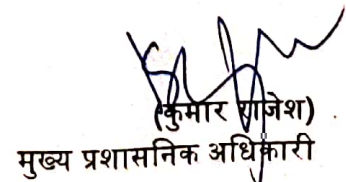 (कुमार राजेश)
मुख्य प्रशासनिक अधिकारी